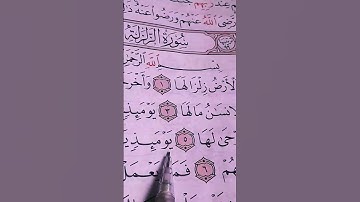 اللَّهُ عَنْهُمْ وَرَضُوا عَنْهُ
سُورَةُ الزَّلْزَلَةِ
بِسْمِ اللَّهِ الرَّحْمَٰ
لْأَرْضُ زِلْزَالَهَا ١ وَأَخْرَجَ
لْإِنسَٰنُ مَا لَهَا ٣ يَوْمَئِذٍ
حَىٰ لَهَا ٥ يَوْمَئِذٍ
هُمْ ٦ فَمَن يَعْمَلْ